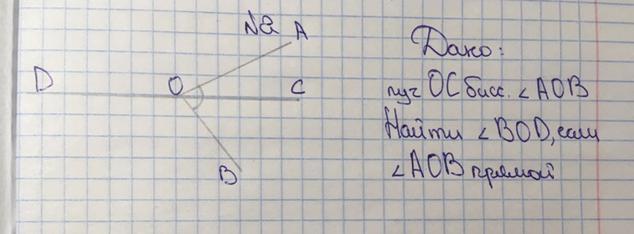 №2
A
D
O
C
B
Дано:
луч OC бисс. ∠AOB
Найти ∠BOD, если
∠AOB прямой